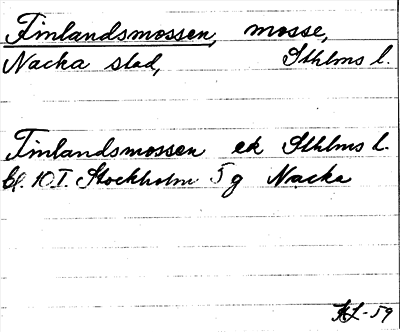 Finlandsmossen, mosse,
Nacka stad, Sthlms l.
Finlandsmossen ek Sthlms l.
bl. 10 I. Stockholm 5 g Nacka
KL-59